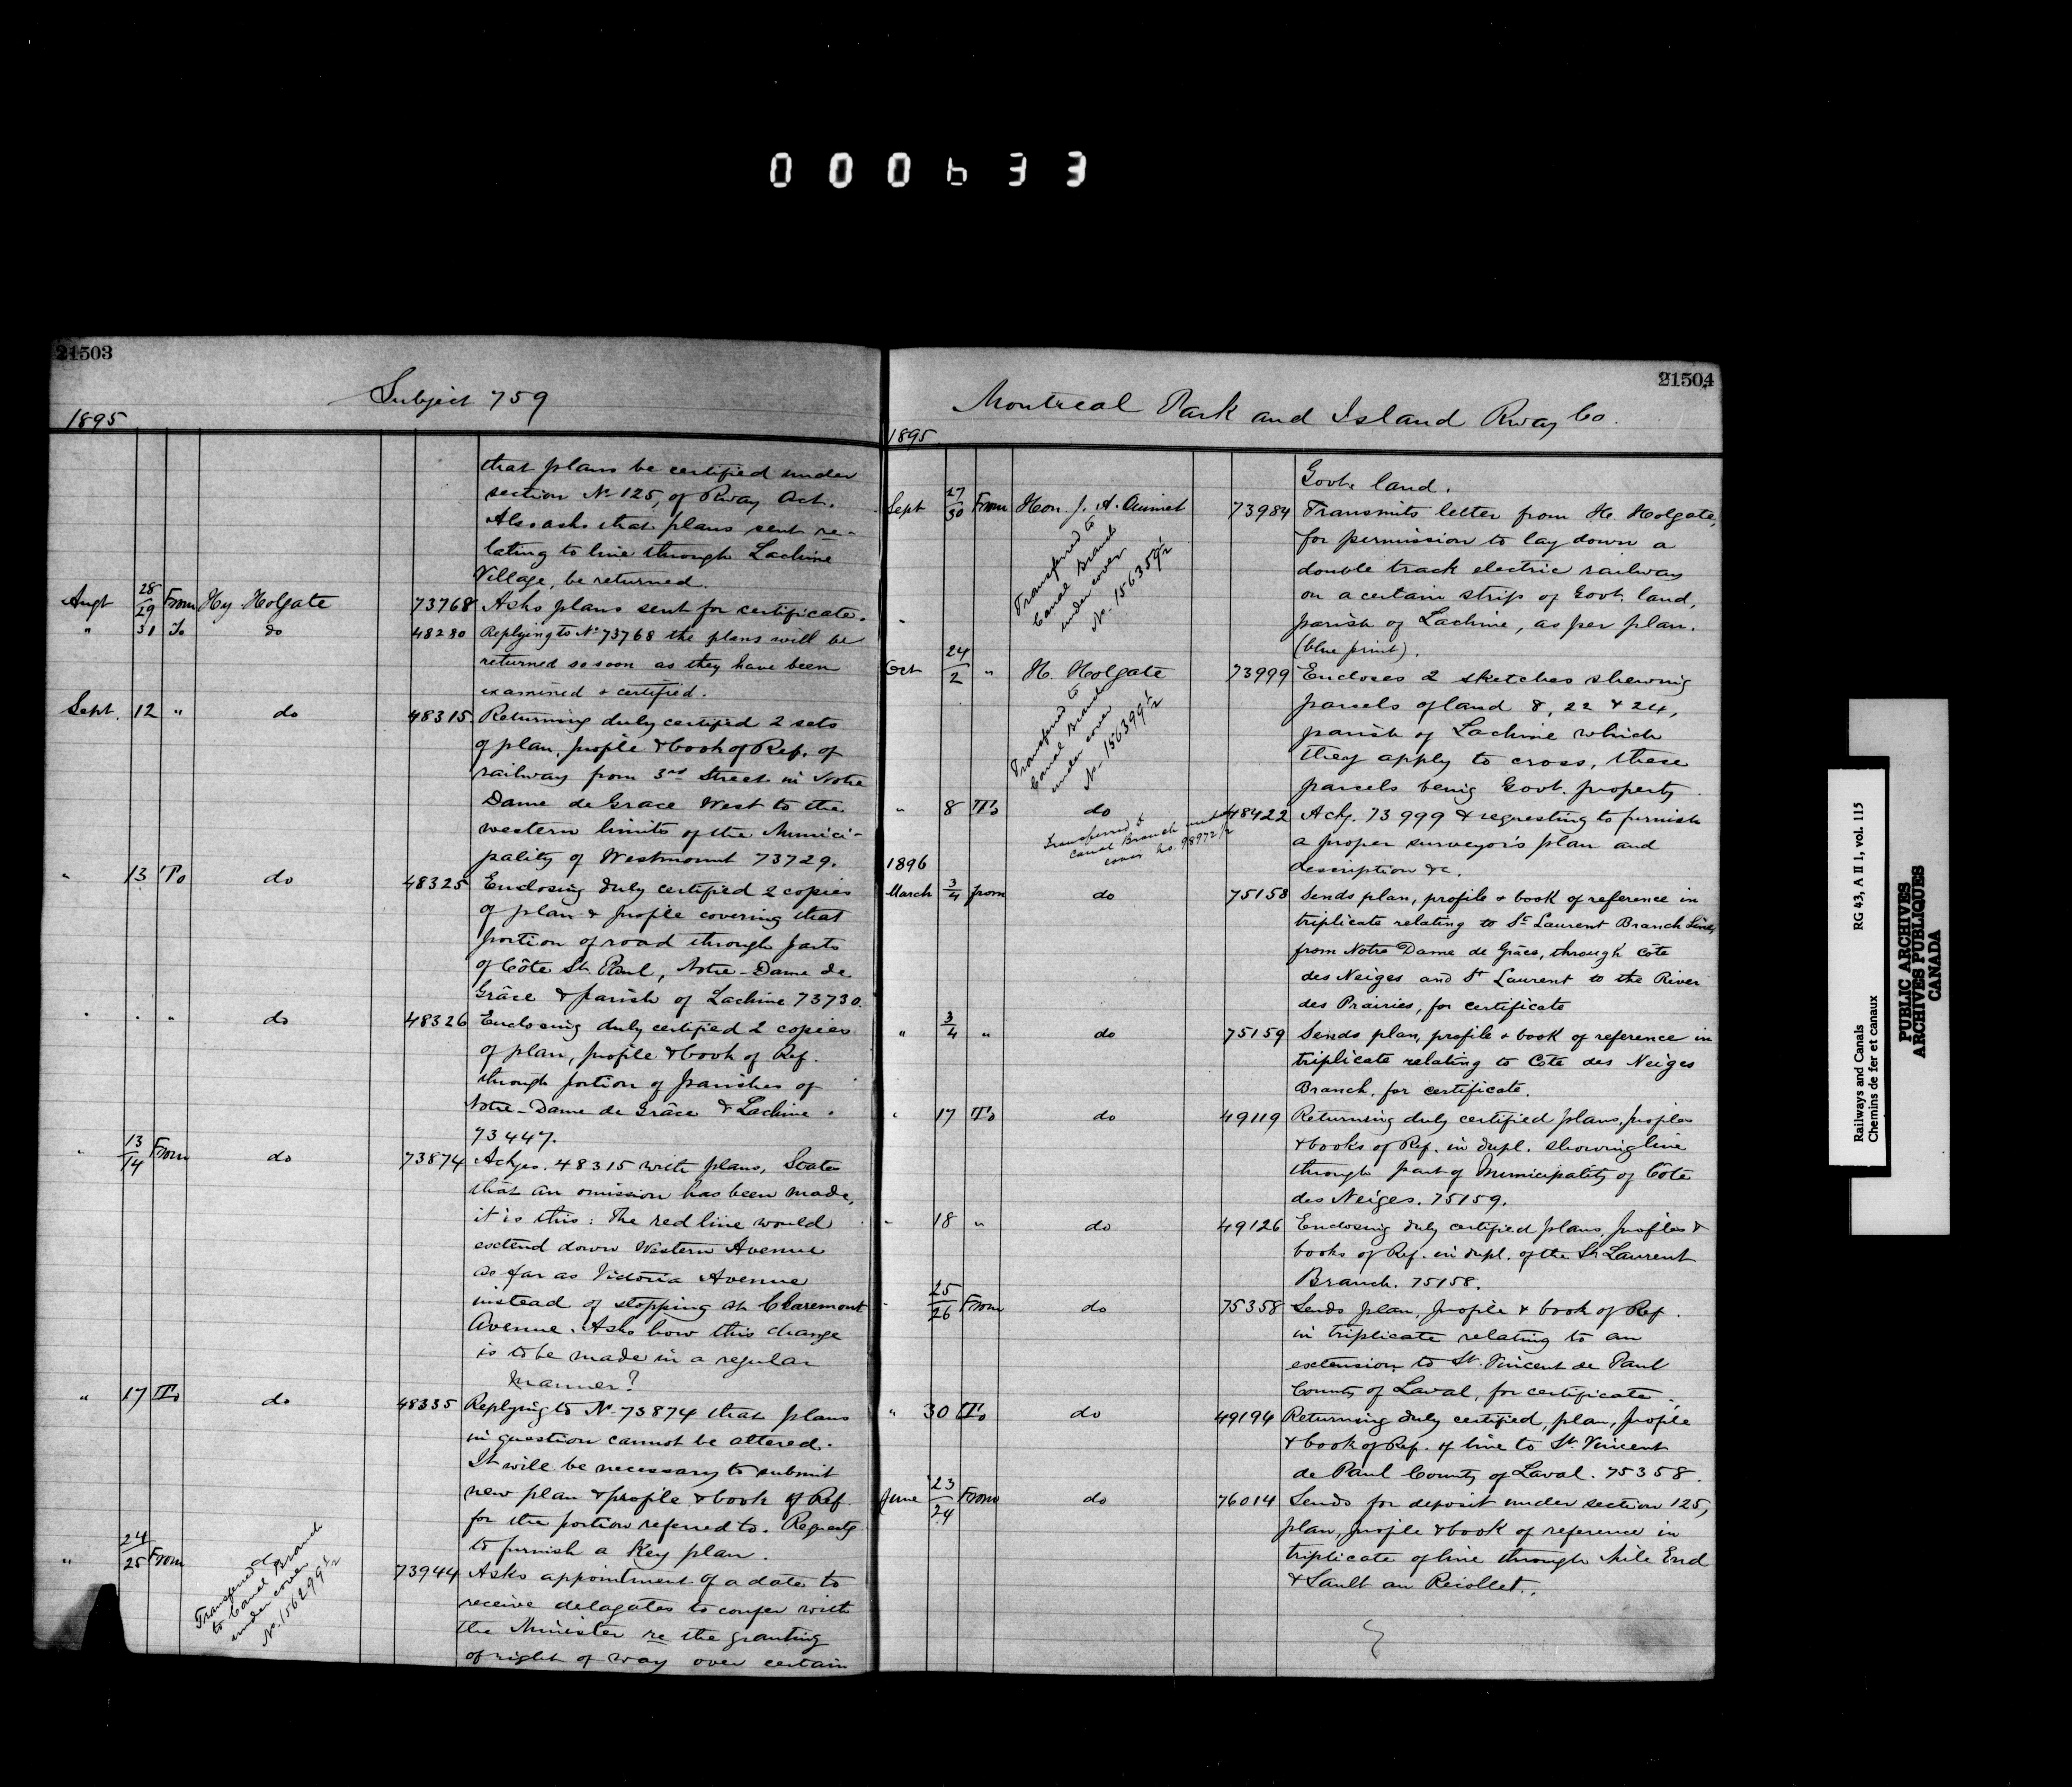 000633
21503
Subject 759
1895
that plans be certified under
section No 125, of Rway Act.
Also asks that plans sent re-
lating to line through Lachine
Village, be returned.
Augt 28/29 From Hy Holgate 73768 Asks plans sent for certificate.
" 31 To do 48280 Replying to No 73768 the plans will be
returned so soon as they have been
examined & certified.
Sept. 12 " do 48315 Returning duly certified 2 sets
of plan, profile & book of Ref. of
railway from 3rd Street in Notre
Dame de Grace West to the
western limits of the Munici-
pality of Westmount 73729.
" 13 To do 48325 Enclosing duly certified 2 copies
of plan & profile covering that
portion of road through parts
of Côte St. Paul, Notre-Dame de
Grâce & parish of Lachine 73730.
" " " do 48326 Enclosing duly certified 2 copies
of plan, profile & book of Ref.
through portion of parishes of
Notre-Dame de Grâce & Lachine.
73447.
" 13/14 From do 73874 Ackges. 48315 with plans, States
that an omission has been made,
it is this: The red line would
extend down Western Avenue
as far as Victoria Avenue
instead of stopping at Claremont
Avenue. Asks how this change
is to be made in a regular
manner?
" 17 To do 48335 Replying to No 73874 that plans
in question cannot be altered.
It will be necessary to submit
new plan & profile & book of Ref
for the portion referred to. Requests
to furnish a Key plan.
" 24/25 From do 73944 Asks appointment of a date to
Transferred
to Canal Branch
under cover
No. 156299 1/2
receive delagates to confer with
the Minister re the granting
of right of way over certain
21504
Montreal Park and Island Rway Co.
1895
Govt. land.
Sept 27/30 From Hon. J. A. Ouimet 73984 Transmits letter from H. Holgate,
Transferred to
Canal Branch
under cover
No. 156359 1/2
for permission to lay down a
double track electric railway
on a certain strip of Govt. land,
parish of Lachine, as per plan.
(blue print).
Oct 24/2 " H. Holgate 73999 Encloses 2 sketches shewing
Transferred to
Canal Branch
under cover
No. 156399 1/2
parcels of land 8, 22 & 24,
parish of Lachine which
they apply to cross, these
parcels being Govt. property
" 8 To do 48422 Ackg. 73999 & requesting to furnish
Transferred to
Canal Branch under
cover no. 98972 1/2
a proper surveyor's plan and
description &c.
1896
March 3/4 from do 75158 Sends plan, profile & book of reference in
triplicate relating to St Laurent Branch Line,
from Notre Dame de Grâce, through Côte
des Neiges and St Laurent to the River
des Prairies, for certificate
" 3/4 " do 75159 Sends plan, profile & book of reference in
triplicate relating to Côte des Neiges
Branch, for certificate.
" 17 To do 49119 Returning duly certified plans, profiles
& books of Ref. in dupl. showing line
through part of Municipality of Côte
des Neiges. 75159.
" 18 " do 49126 Enclosing duly certified plans, profiles &
books of Ref. in dupl. of the St. Laurent
Branch. 75158.
" 25/26 From do 75358 Sends plan, profile & book of Ref.
in triplicate relating to an
extension to St. Vincent de Paul
County of Laval, for certificate.
" 30 To do 49194 Returning duly certified, plan, profile
& book of Ref. of line to St. Vincent
de Paul County of Laval. 75358.
June 23/24 From do 76014 Sends for deposit under section 125,
plan, profile & book of reference in
triplicate of line through Mile End
& Sault au Recollet.
Railways and Canals RG 43, A II 1, vol. 115
Chemins de fer et canaux
PUBLIC ARCHIVES
ARCHIVES PUBLIQUES
CANADA